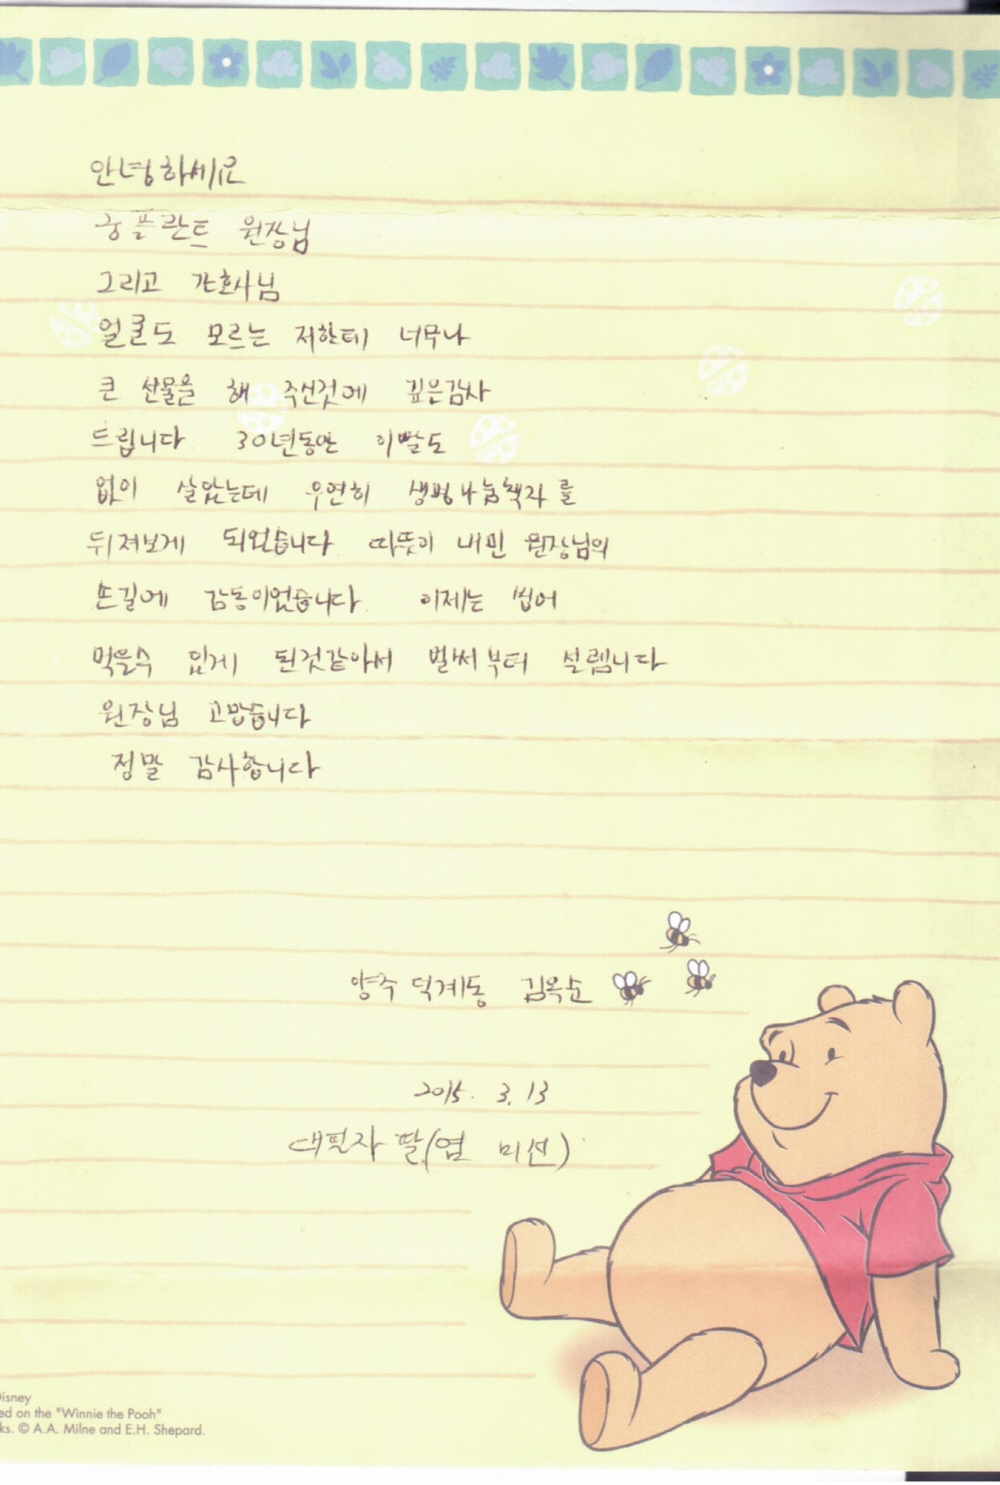 안녕하세요
궁플란트 원장님
그리고 간호사님
얼굴도 모르는 저한테 너무나
큰 선물을 해 주신것에 깊은감사
드립니다 30년동안 이빨도
없이 살았는데 우연히 생명나눔책자를
뒤져보게 되었습니다 따뜻이 내민 원장님의
손길에 감동이었습니다. 이제는 씹어
먹을수 있게 된것같아서 벌써부터 설렙니다
원장님 고맙습니다
정말 감사합니다
양주 덕계동 김옥순
2015. 3. 13
대필자 딸(엄 미선)
Disney
ed on the "Winnie the Pooh"
ks. © A.A. Milne and E.H. Shepard.